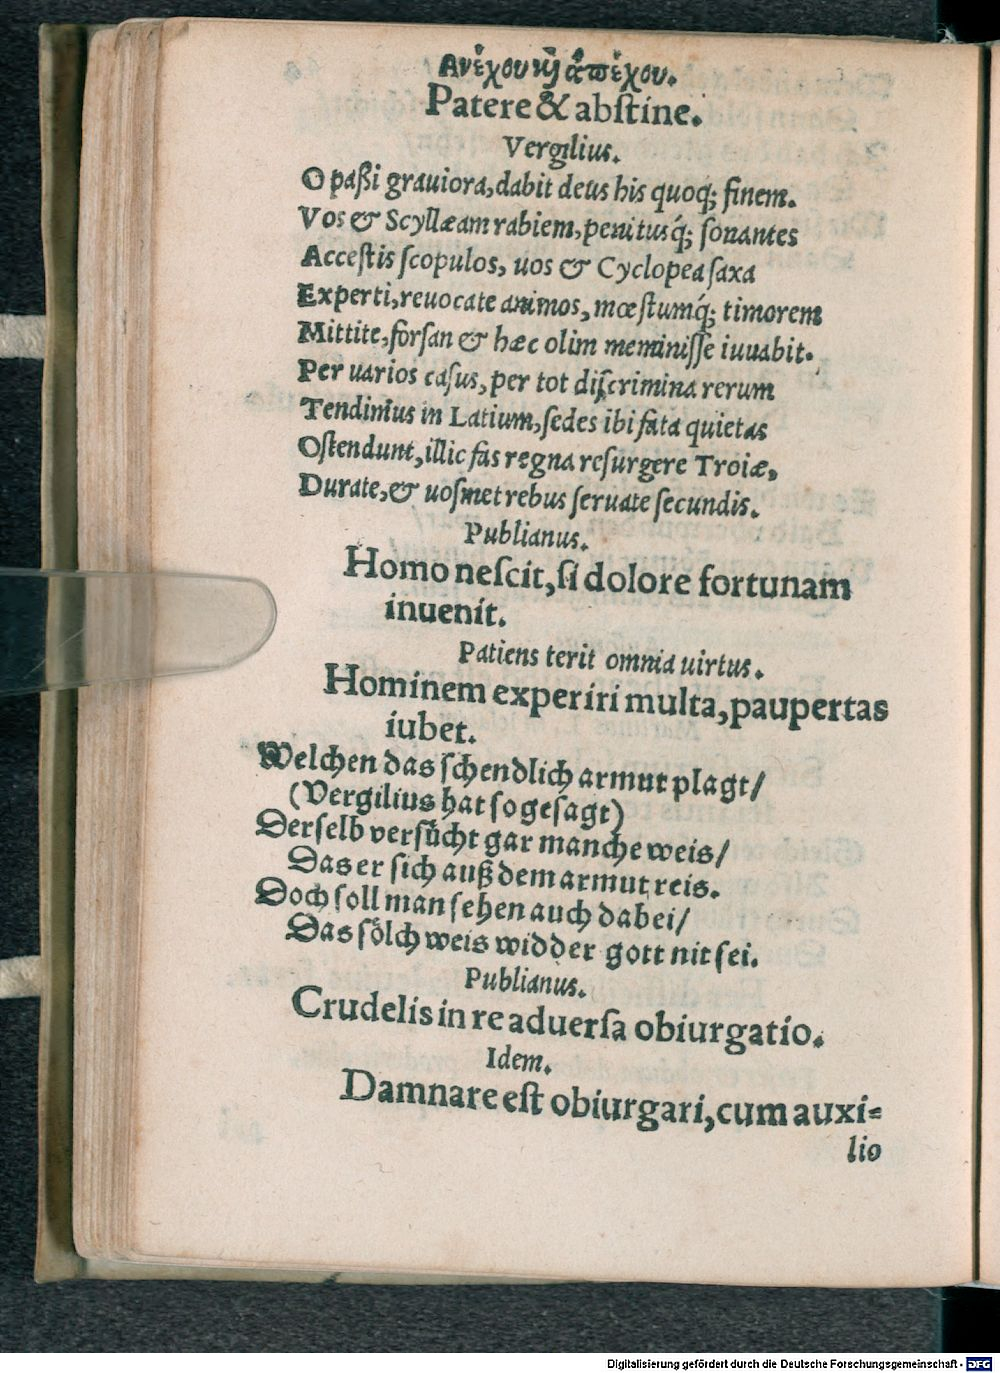 Ανέχου καὶ ἀπέχου.
Patere & abſtine.
Vergilius.
O paßi grauiora, dabit deus his quoq; finem.
Vos & Scyllæam rabiem, penitusq́; ſonantes
Acceſtis ſcopulos, uos & Cyclopea ſaxa
Experti, reuocate animos, mœſtumq́; timorem
Mittite, forſan & hæc olim meminiſſe iuuabit.
Per uarios caſus, per tot diſcrimina rerum
Tendimus in Latium, ſedes ibi fata quietas
Oſtendunt, illic fas regna reſurgere Troiæ,
Durate, & uoſmet rebus ſeruate ſecundis.
Publianus.
Homo neſcit, ſi dolore fortunam
inuenit.
Patiens terit omnia uirtus.
Hominem experiri multa, paupertas
iubet.
Welchen das ſchendlich armut plagt/
(Vergilius hat ſo geſagt)
Derſelb verſůcht gar manche weis/
Das er ſich auß dem armut reis.
Doch ſoll man ſehen auch dabei/
Das ſölch weis widder gott nit ſei.
Publianus.
Crudelis in re aduerſa obiurgatio.
Idem.
Damnare eſt obiurgari, cum auxi⸗
lio
Digitalisierung gefördert durch die Deutsche Forschungsgemeinschaft - DFG